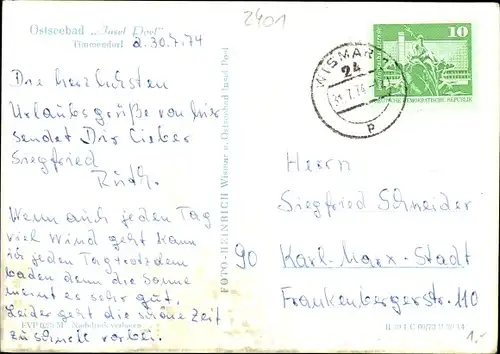 2401
Ostseebad „Insel Poel"
Timmendorf d. 30.7.74
Die herzlichsten
Urlaubsgrüße von hier
sendet Dir Lieber
Siegfried
Ruth.
Wenn auch jeden Tag
viel Wind geht kann
ich jeden Tag trotzdem
baden denn die Sonne
meint es sehr gut.
Leider geht die schöne Zeit
zu schnell vorbei.
EVP 0,20 M Nachdruck verboten
FOTO-HEINRICH Wismar u. Ostseebad Insel Poel
10
DEUTSCHE DEMOKRATISCHE REPUBLIK
WISMAR
24
31.7.74
p
Herrn
Siegfried Schneider
90 Karl-Marx-Stadt
Frankenbergerstr. 110
1,-